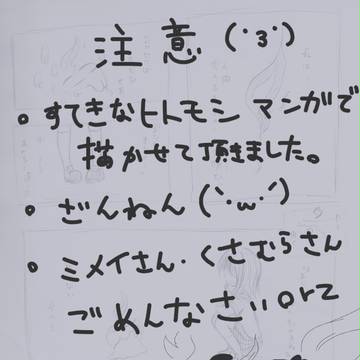 注意(･3･)
・すてきなヒトモシ マンガで
描かせて頂きました。
・ざんねん(`･ω･´)
・ミメイさん・くさむらさん
ごめんなさいorz